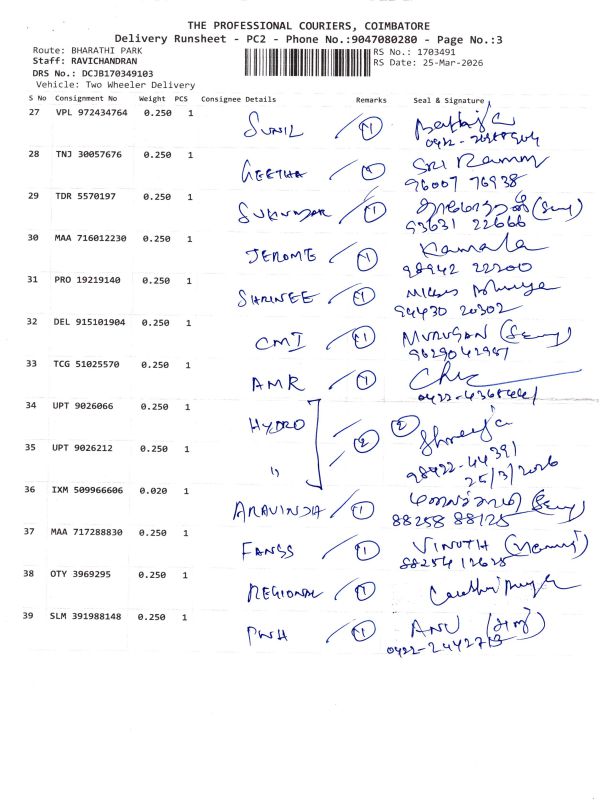 THE PROFESSIONAL COURIERS, COIMBATORE
Delivery Runsheet - PC2 - Phone No.:9047080280 - Page No.:3
Route: BHARATHI PARK RS No.: 1703491
Staff: RAVICHANDRAN RS Date: 25-Mar-2026
DRS No.: DCJB170349103
Vehicle: Two Wheeler Delivery
S No Consignment No Weight PCS Consignee Details Remarks Seal & Signature
27 VPL 972434764 0.250 1 SUNIL 1
28 TNJ 30057676 0.250 1 GEETHA 1 SRI Ramm
96007 76938
29 TDR 5570197 0.250 1 SUKUMAR 1
93631 22666
30 MAA 716012230 0.250 1 JEROME 1 Kamala
98942 22200
31 PRO 19219140 0.250 1 SHRINEE 1
94430 20302
32 DEL 915101904 0.250 1 CMI 1 MURUGAN
33 TCG 51025570 0.250 1 AMR 1
34 UPT 9026066 0.250 1 HYDRO 2 2
35 UPT 9026212 0.250 1 " 98422-44391
25/3/2026
36 IXM 509966606 0.020 1 ARAVINDH 1
88258 88125
37 MAA 717288830 0.250 1 FANSS 1 VINUTH
88254 12625
38 OTY 3969295 0.250 1 REGIONAL 1
39 SLM 391988148 0.250 1 PWH 1 ANU
0422-2442713